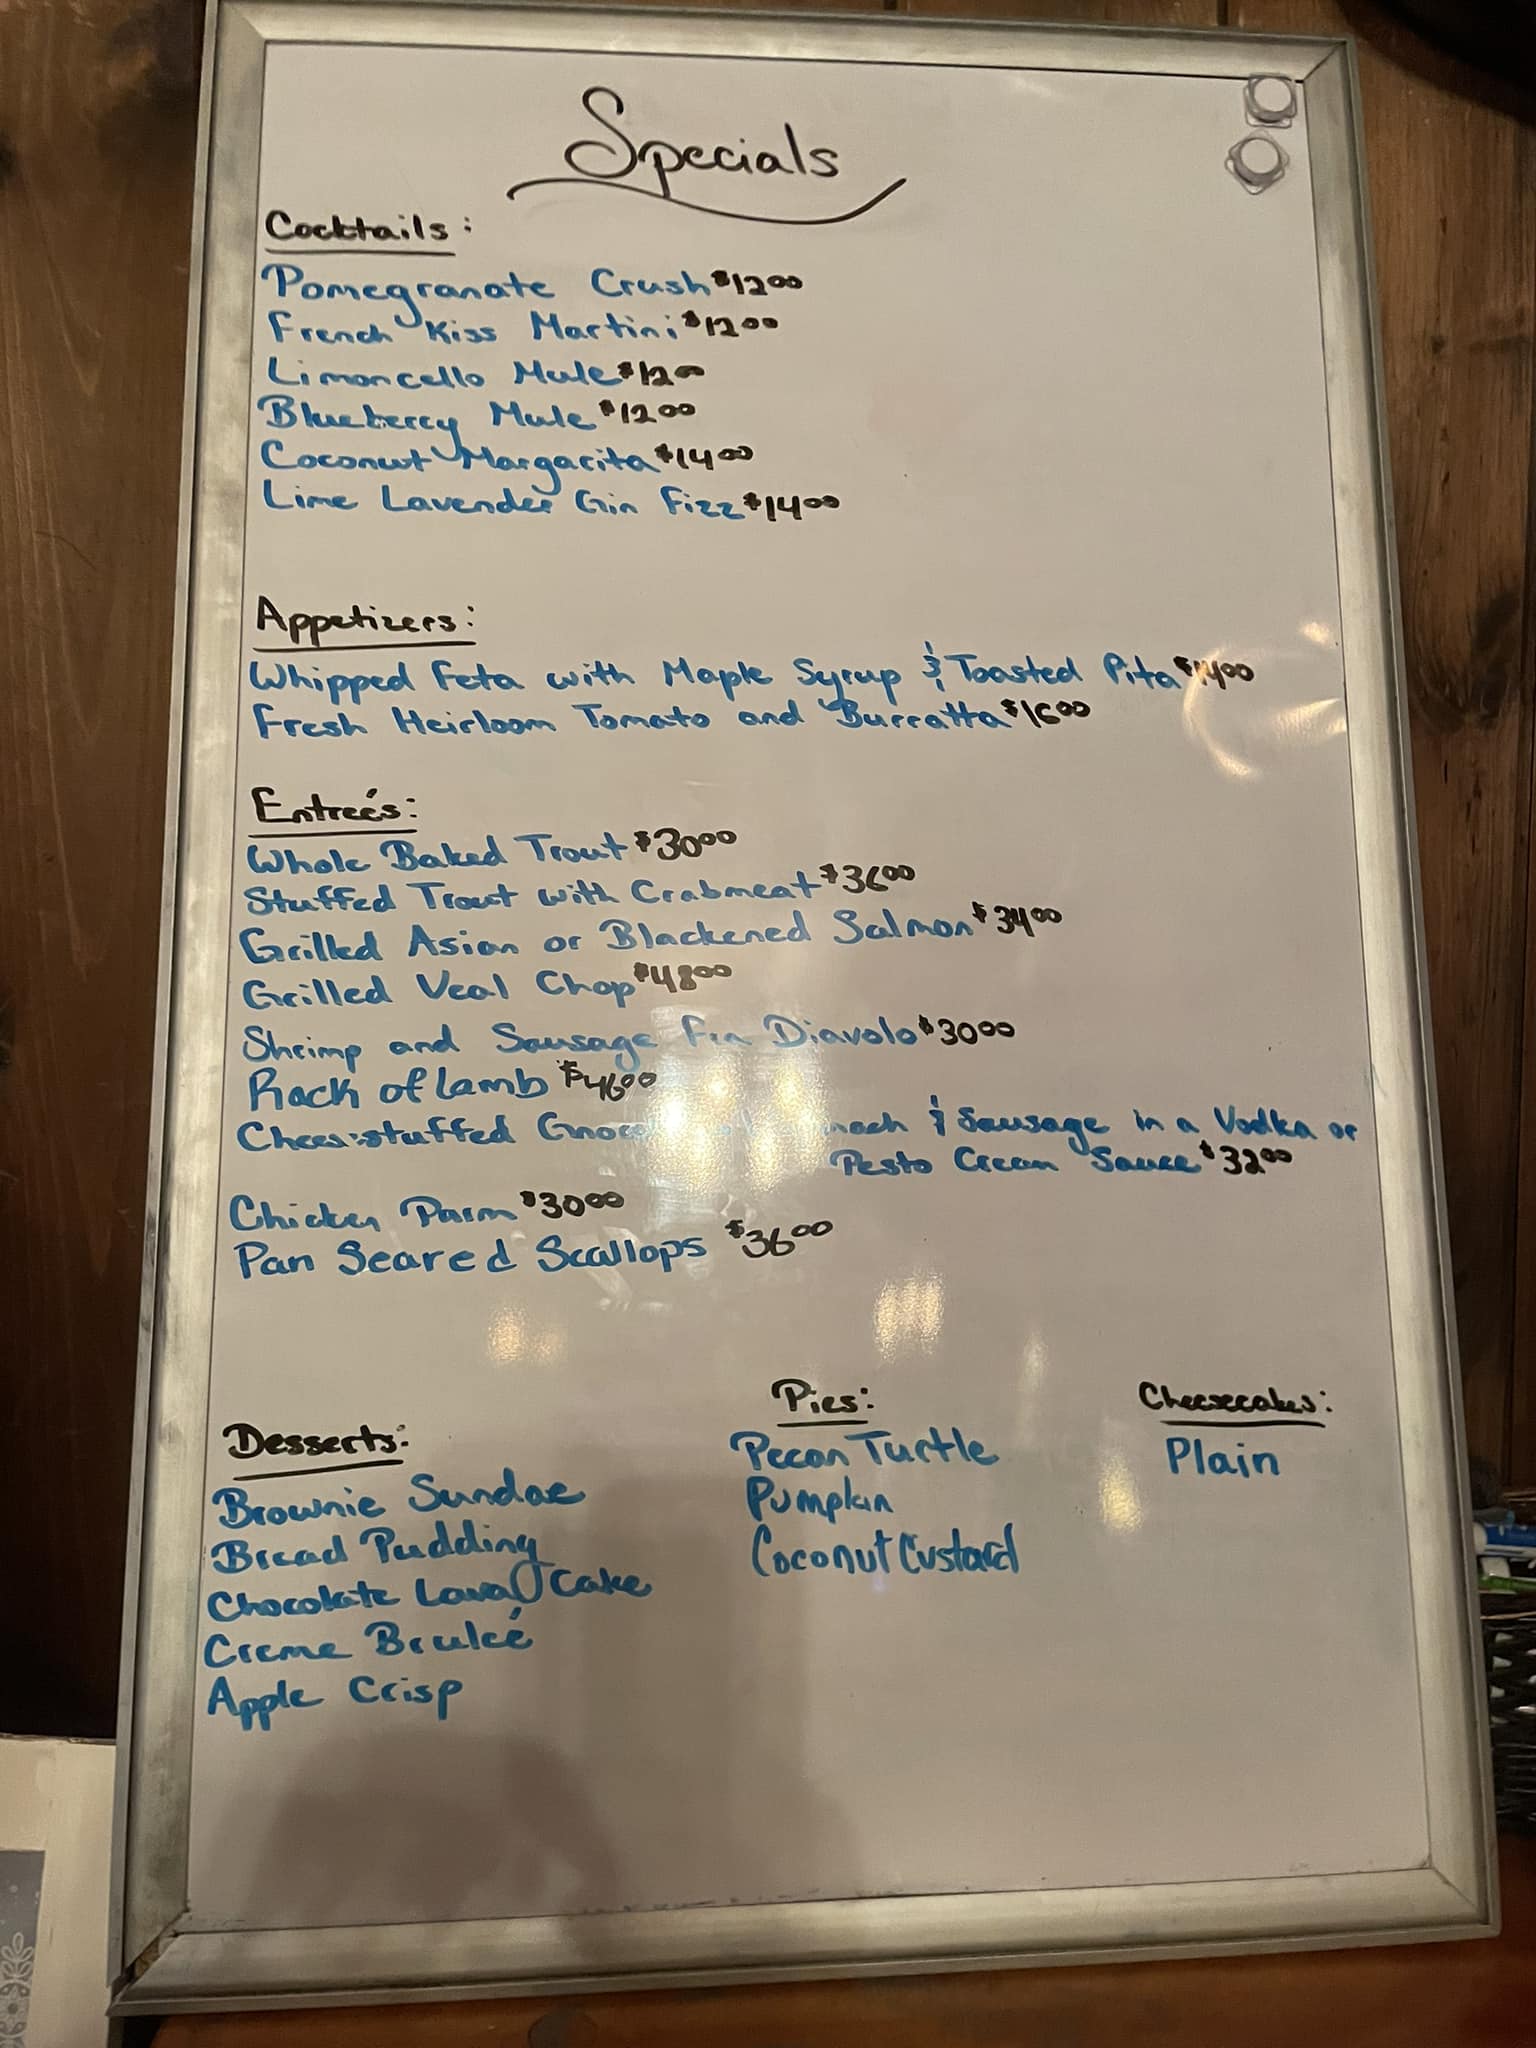 Specials
Cocktails:
Pomegranate Crush $12.00
French Kiss Martini $12.00
Limoncello Mule $12.00
Blueberry Mule $12.00
Coconut Margarita $14.00
Lime Lavender Gin Fizz $14.00
Appetizers:
Whipped Feta with Maple Syrup & Toasted Pita $14.00
Fresh Heirloom Tomato and Burratta $16.00
Entreés:
Whole Baked Trout $30.00
Stuffed Trout with Crabmeat $36.00
Grilled Asian or Blackened Salmon $34.00
Grilled Veal Chop $48.00
Shrimp and Sausage Fra Diavolo $30.00
Rack of lamb $46.00
Cheese stuffed & Sausage in a Vodka or
Pesto Cream Sauce $32.00
Chicken Parm $30.00
Pan Seared Scallops $36.00
Desserts:
Brownie Sundae
Bread Pudding
Chocolate Lava Cake
Creme Bruleé
Apple Crisp
Pies:
Pecan Turtle
Pumpkin
Coconut Custard
Cheesecakes:
Plain